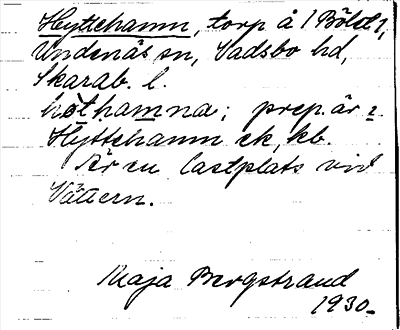 Hyttehamn, torp å 1 Bölet 1,
Undenäs sn, Vadsbo hd,
Skarab. l.
hòthamna; prep. är i
Hyttehamn ek, kb.
Är en lastplats vid
Vättern.
Maja Bergstrand
1930.